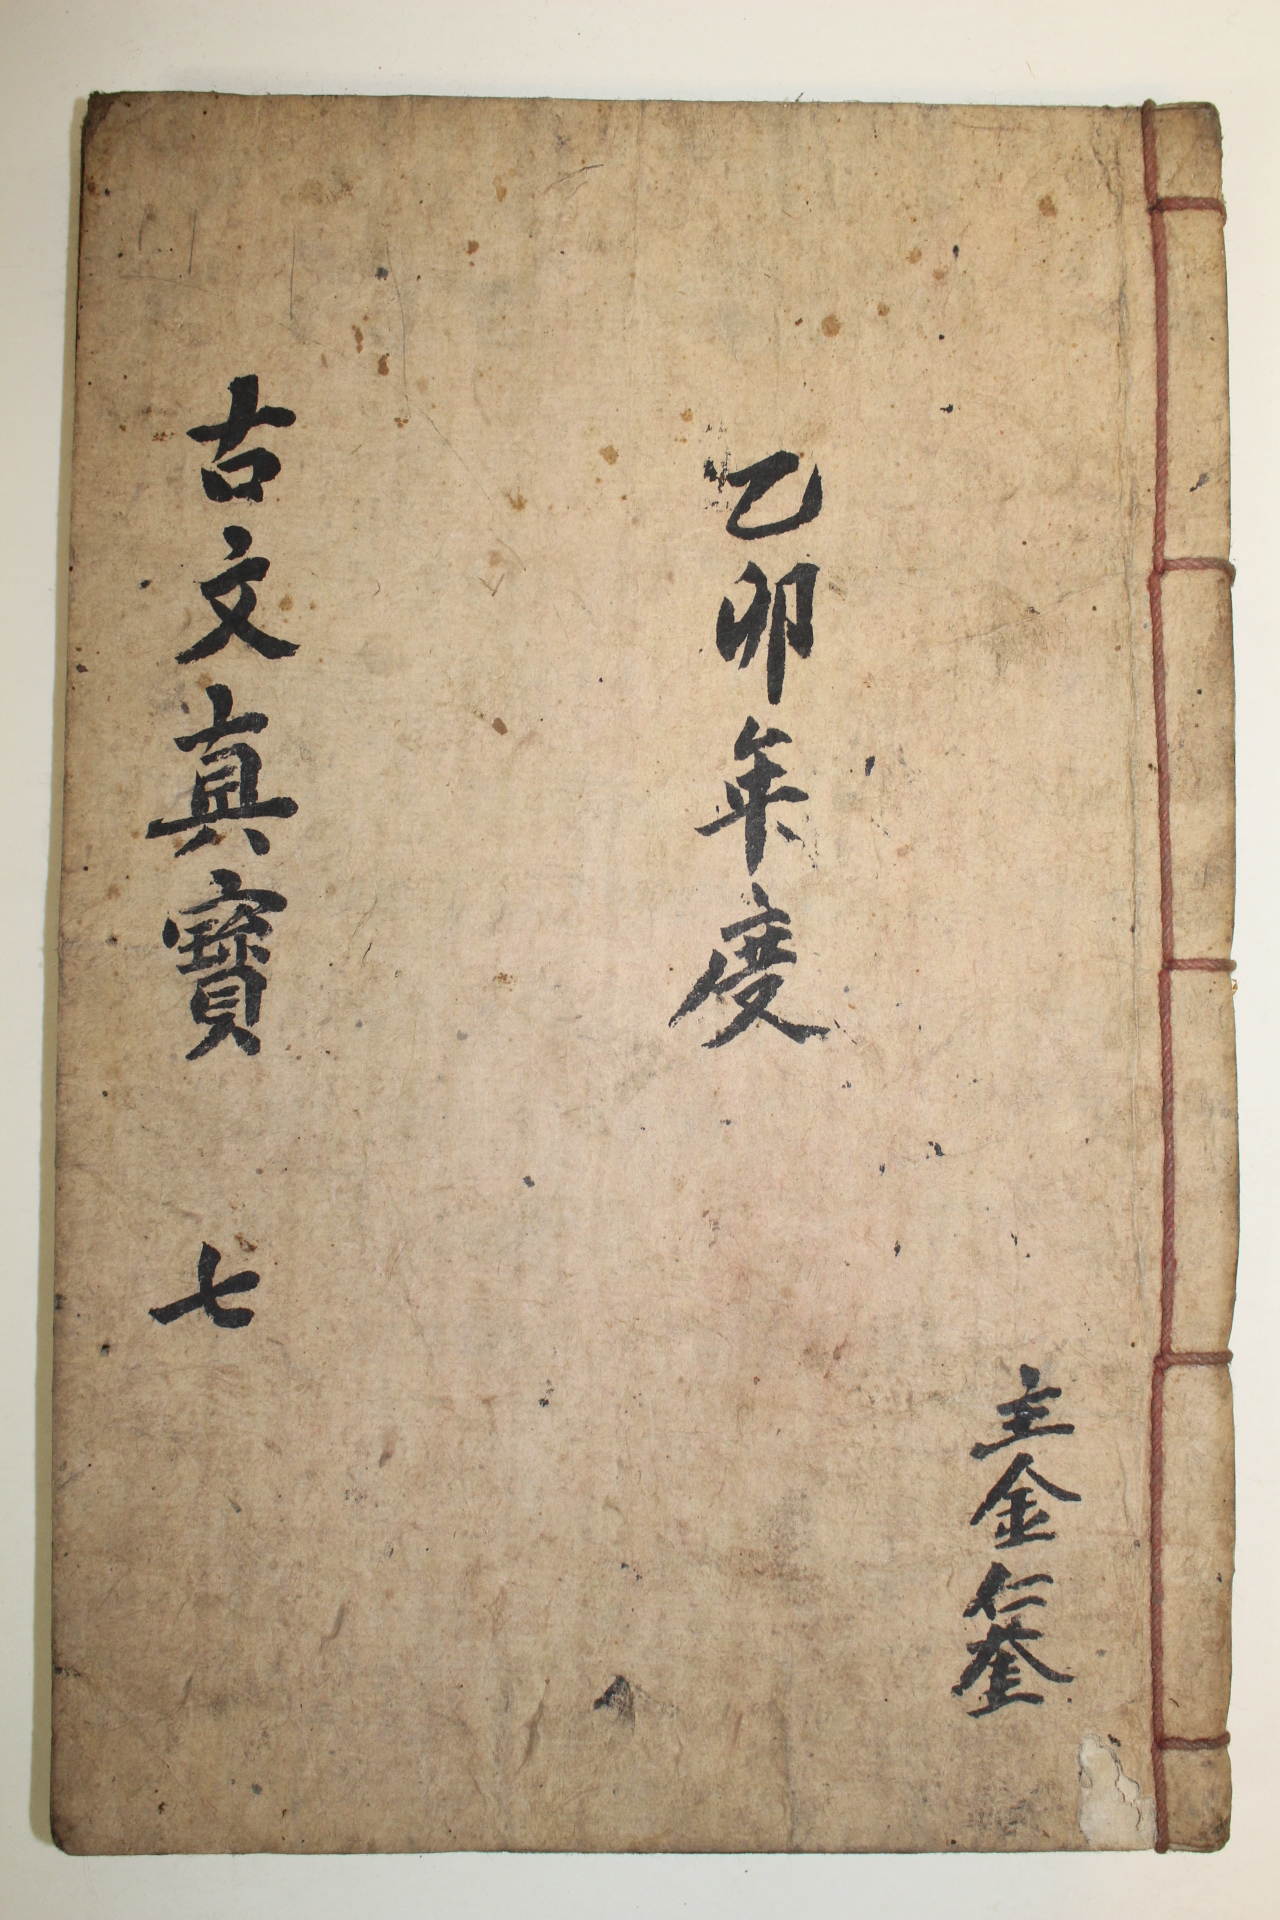 主金仁奎
乙卯年度
古文真寶 七